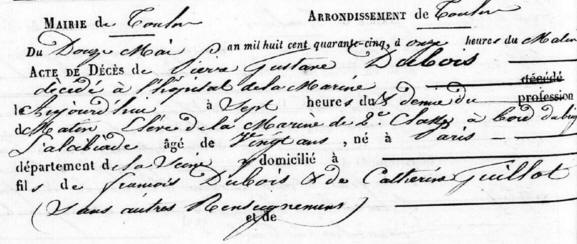 MAIRIE de Toulon ARRONDISSEMENT de Toulon
Du Douze Mai l'an mil huit cent quarante-cinq, à onze heures du Matin
ACTE DE DÉCÈS de Pierre Gustave Dubois
décédé à l'hopital de la Marine décédé
le Aujourd'hui à Sept heures & demie du profession
du Matin Elève de la Marine de 2e Classe à bord du brig
L'alcibiade âgé de Vingt ans, né à Paris
département de la Seine & domicilié à
fils de françois Dubois & de Catherine Guillot
(Sans autres Renseignements)
et de